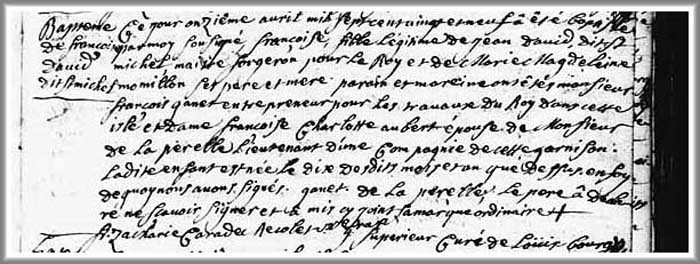 Baptême Ce jour onzième avril mil sept cent vingt et neuf a été baptisée
de francoise par moy sousigné francoise, fille légitime de jean david, dit st
david michel maitre forgeron pour le Roy et de Marie Magdeleine
dit st michel momillon ses pere et mere. parain et mareine ont étés monsieur
francois ganet entrepreneur pour les travaux du Roy dans cette
isle et dame francoise Charlotte aubert épouse de Monsieur
de la perelle Lieutenant d'une Compagnie de cette garnison.
Ladite enfant est née le dix desdits mois et an que dessus, en foy
de quoy nous avons signés. ganet. de la perelle, le pere a declaré
ne scavoir signer et a mis cy joint sa marque ordinaire +
fr. zacharie Caradec Recolet
superieur Curé de Louisbourg